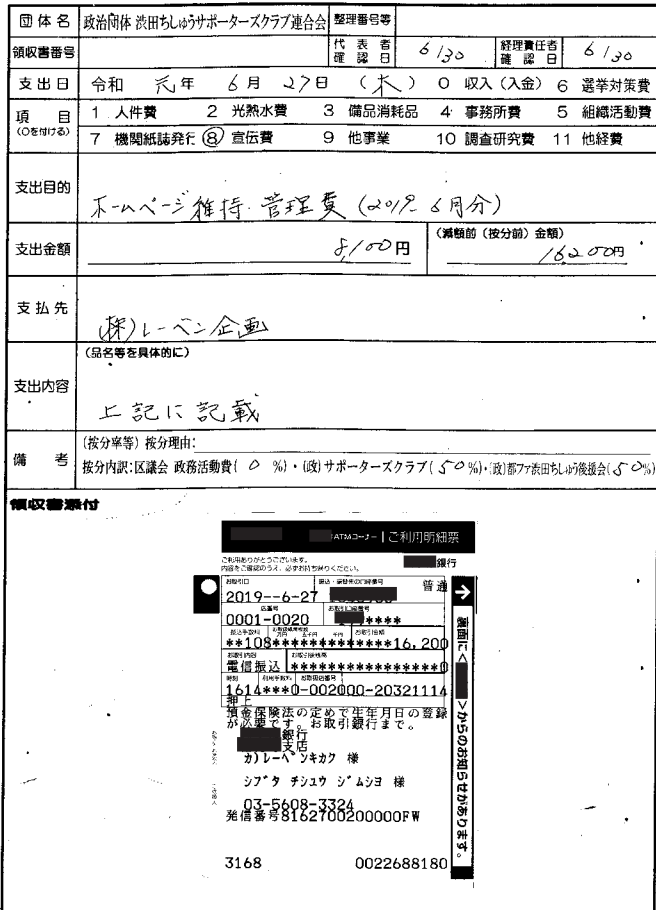 団体名 政治団体 渋田ちしゅうサポーターズクラブ連合会 整理番号等
領収書番号 代表者確認日 6/30 経理責任者確認日 6/30
支出日 令和 元年 6月 27日 (木) 0 収入(入金) 6 選挙対策費
項目 (○を付ける) 1 人件費 2 光熱水費 3 備品消耗品 4 事務所費 5 組織活動費
7 機関紙誌発行 ⑧ 宣伝費 9 他事業 10 調査研究費 11 他経費
支出目的 ホームページ維持・管理費(2019.6月分)
支出金額 8,100円 (減額前(按分前)金額) 16,200円
支払先 (株)レーベン企画
支出内容 (品名等を具体的に)
上記に記載
備考 (按分率等) 按分理由:
按分内訳:区議会 政務活動費( 0 %)・(政)サポーターズクラブ(50%)・(政)都ファ渋田ちしゅう後援会(50%)
領収書添付
ATMコーナー ご利用明細票
ご利用ありがとうございます。
内容をご確認のうえ、必ずお持ち帰りください。
銀行
お取引日 振込・振替先の口座番号 普通
2019--6-27
店番号 お取引口座番号
0001-0020 ****
振込手数料 お取扱紙幣枚数 万円 五千円 千円 お取引金額
**108*************16,200
お取引内容 お取引後残高
電信振込 *****************0
時刻 利用手数料 お取扱店番号
1614***0-002000-20321114
押上
預金保険法の定めで生年月日の登録
が必要です。お取引銀行まで。
銀行
支店
カ)レーベンキカク 様
シブタ チシュウ ジムシヨ 様
03-5608-3324
発信番号8162700200000FW
3168 0022688180
裏面に< >からのお知らせがあります。